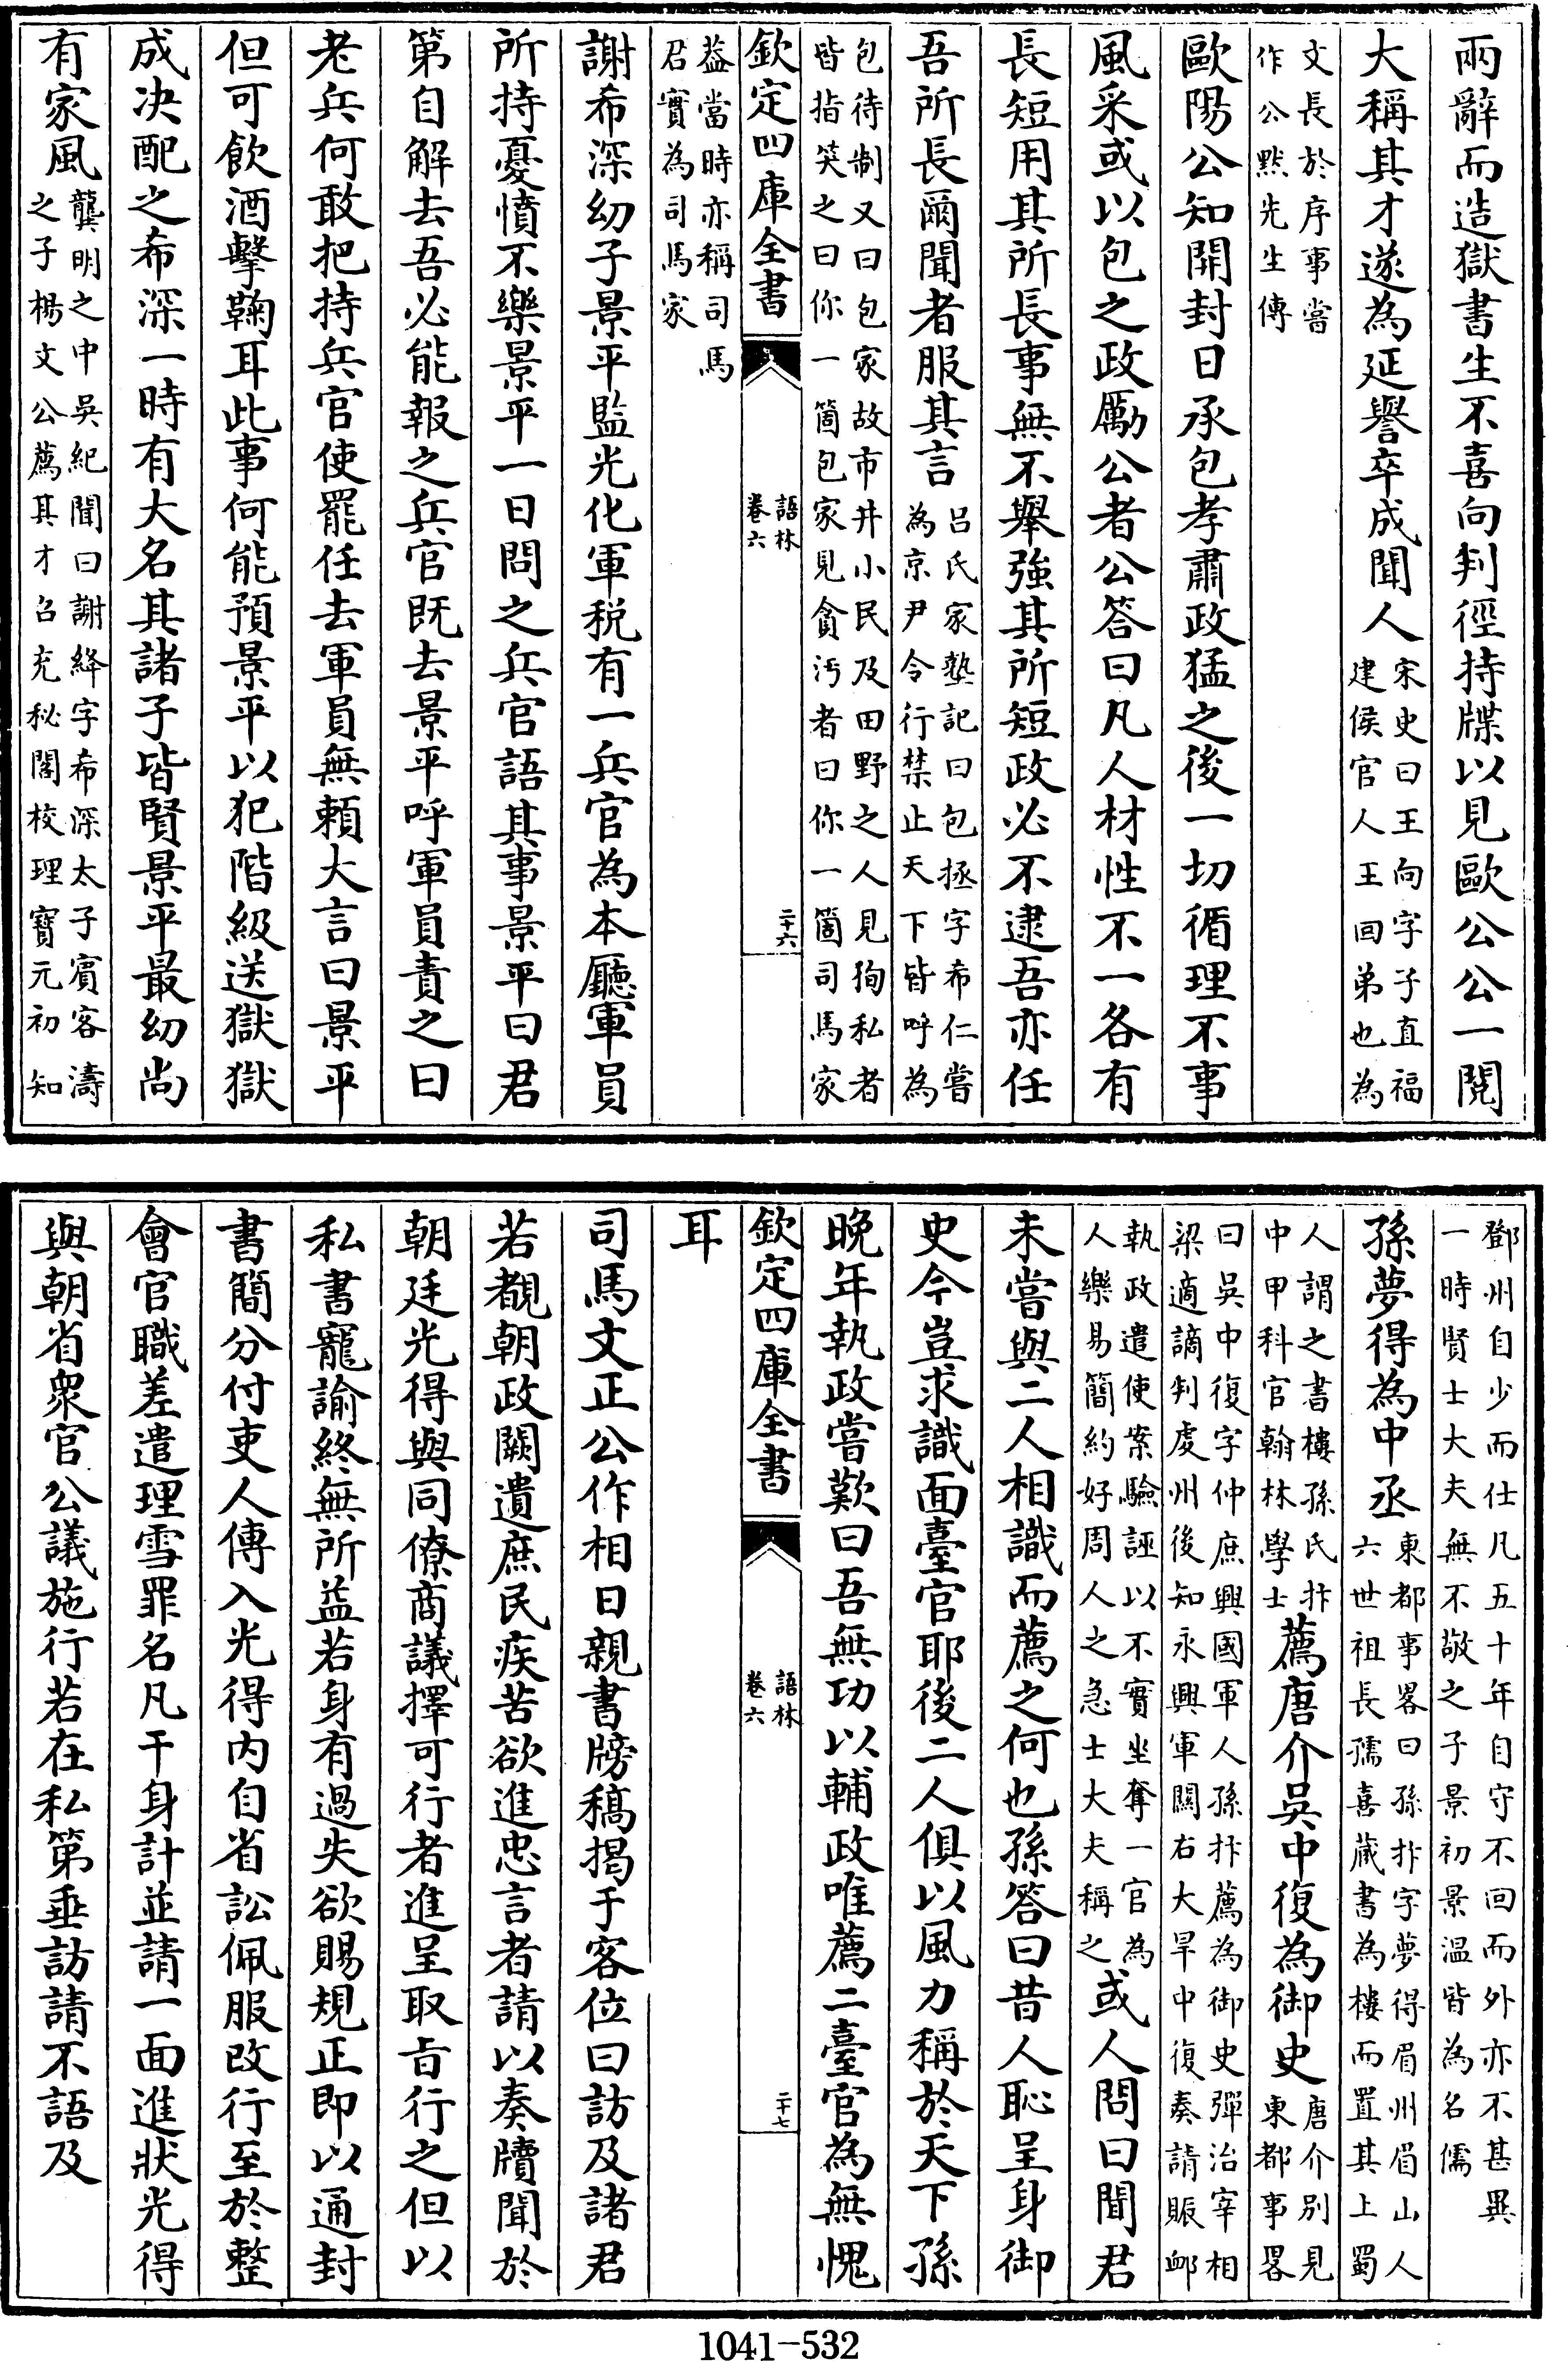 兩辭而造獄書生不喜向判徑持牒以見歐公公一閱
大稱其才遂為延譽卒成聞人宋史曰王向字子直福
建侯官人王回弟也為
文長於序事嘗
作公黙先生傳
歐陽公知開封日承包孝肅政猛之後一切循理不事
風采或以包之政勵公者公答曰凡人材性不一各有
長短用其所長事無不舉強其所短政必不逮吾亦任
吾所長爾聞者服其言呂氏家塾記曰包拯字希仁嘗
為京尹令行禁止天下皆呼為
包待制又曰包家故市井小民及田野之人見狥私者
皆指笑之曰你一箇包家見貪汚者曰你一箇司馬家
欽定四庫全書
語林
卷六
二十六
葢當時亦稱司馬
君實為司馬家
謝希深幼子景平監光化軍稅有一兵官為本廳軍員
所持憂憤不樂景平一日問之兵官語其事景平曰君
第自解去吾必能報之兵官既去景平呼軍員責之曰
老兵何敢把持兵官使罷任去軍員無賴大言曰景平
但可飲酒擊鞠耳此事何能預景平以犯階級送獄獄
成决配之希深一時有大名其諸子皆賢景平最幼尚
有家風龔明之中吳紀聞曰謝絳字希深太子賓客濤
之子楊文公薦其才召充秘閣校理寶元初知
鄧州自少而仕凡五十年自守不回而外亦不甚異
一時賢士大夫無不敬之子景初景溫皆為名儒
孫夢得為中丞東都事畧曰孫抃字夢得眉州眉山人
六世祖長孺喜藏書為樓而置其上蜀
人謂之書樓孫氏抃
中甲科官翰林學士薦唐介吳中復為御史唐介別見
東都事畧
曰吳中復字仲庶興國軍人孫抃薦為御史彈治宰相
梁適謫判虔州後知永興軍關右大旱中復奏請賑卹
執政遣使案驗誣以不實坐奪一官為
人樂易簡約好周人之急士大夫稱之或人問曰聞君
未嘗與二人相識而薦之何也孫答曰昔人恥呈身御
史今豈求識面臺官耶後二人俱以風力稱於天下孫
晚年執政嘗歎曰吾無功以輔政唯薦二臺官為無愧
欽定四庫全書
語林
卷六
二十七
耳
司馬文正公作相日親書牓稿揭于客位曰訪及諸君
若覩朝政闕遺庶民疾苦欲進忠言者請以奏牘聞於
朝廷光得與同僚商議擇可行者進呈取旨行之但以
私書寵諭終無所益若身有過失欲賜規正即以通封
書簡分付吏人傳入光得內自省訟佩服改行至於整
會官職差遣理雪罪名凡干身計並請一面進狀光得
與朝省衆官公議施行若在私第垂訪請不語及
1041-532